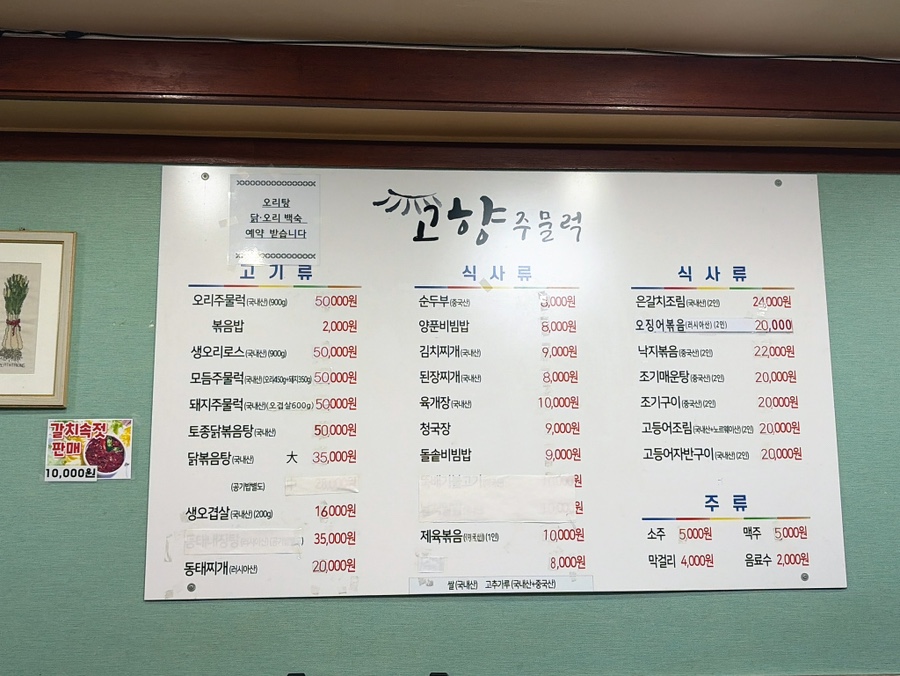 오리탕
닭·오리 백숙
예약 받습니다
고향 주물럭
고기류
오리주물럭(국내산)(900g) 50,000원
볶음밥 2,000원
생오리로스(국내산)(900g) 50,000원
모듬주물럭(국내산)(오리450g+돼지350g) 50,000원
돼지주물럭(국내산)(오겹살600g) 50,000원
토종닭볶음탕(국내산) 50,000원
닭볶음탕(국내산) 大 35,000원
(공기밥별도)
생오겹살(국내산)(200g) 16,000원
35,000원
동태찌개(러시아산) 20,000원
식사류
순두부(중국산) 8,000원
양푼비빔밥 8,000원
김치찌개(국내산) 9,000원
된장찌개(국내산) 8,000원
육개장(국내산) 10,000원
청국장 9,000원
돌솥비빔밥 9,000원
제육볶음(1인) 10,000원
8,000원
쌀(국내산) 고추가루(국내산+중국산)
식사류
은갈치조림(국내산)(2인) 24,000원
오징어볶음(러시아산)(2인) 20,000
낙지볶음(중국산)(2인) 22,000원
조기매운탕(중국산)(2인) 20,000원
조기구이(중국산)(2인) 20,000원
고등어조림(국내산+노르웨이산)(2인) 20,000원
고등어자반구이(국내산)(2인) 20,000원
주류
소주 5,000원 맥주 5,000원
막걸리 4,000원 음료수 2,000원
갈치속젓
판매
10,000원